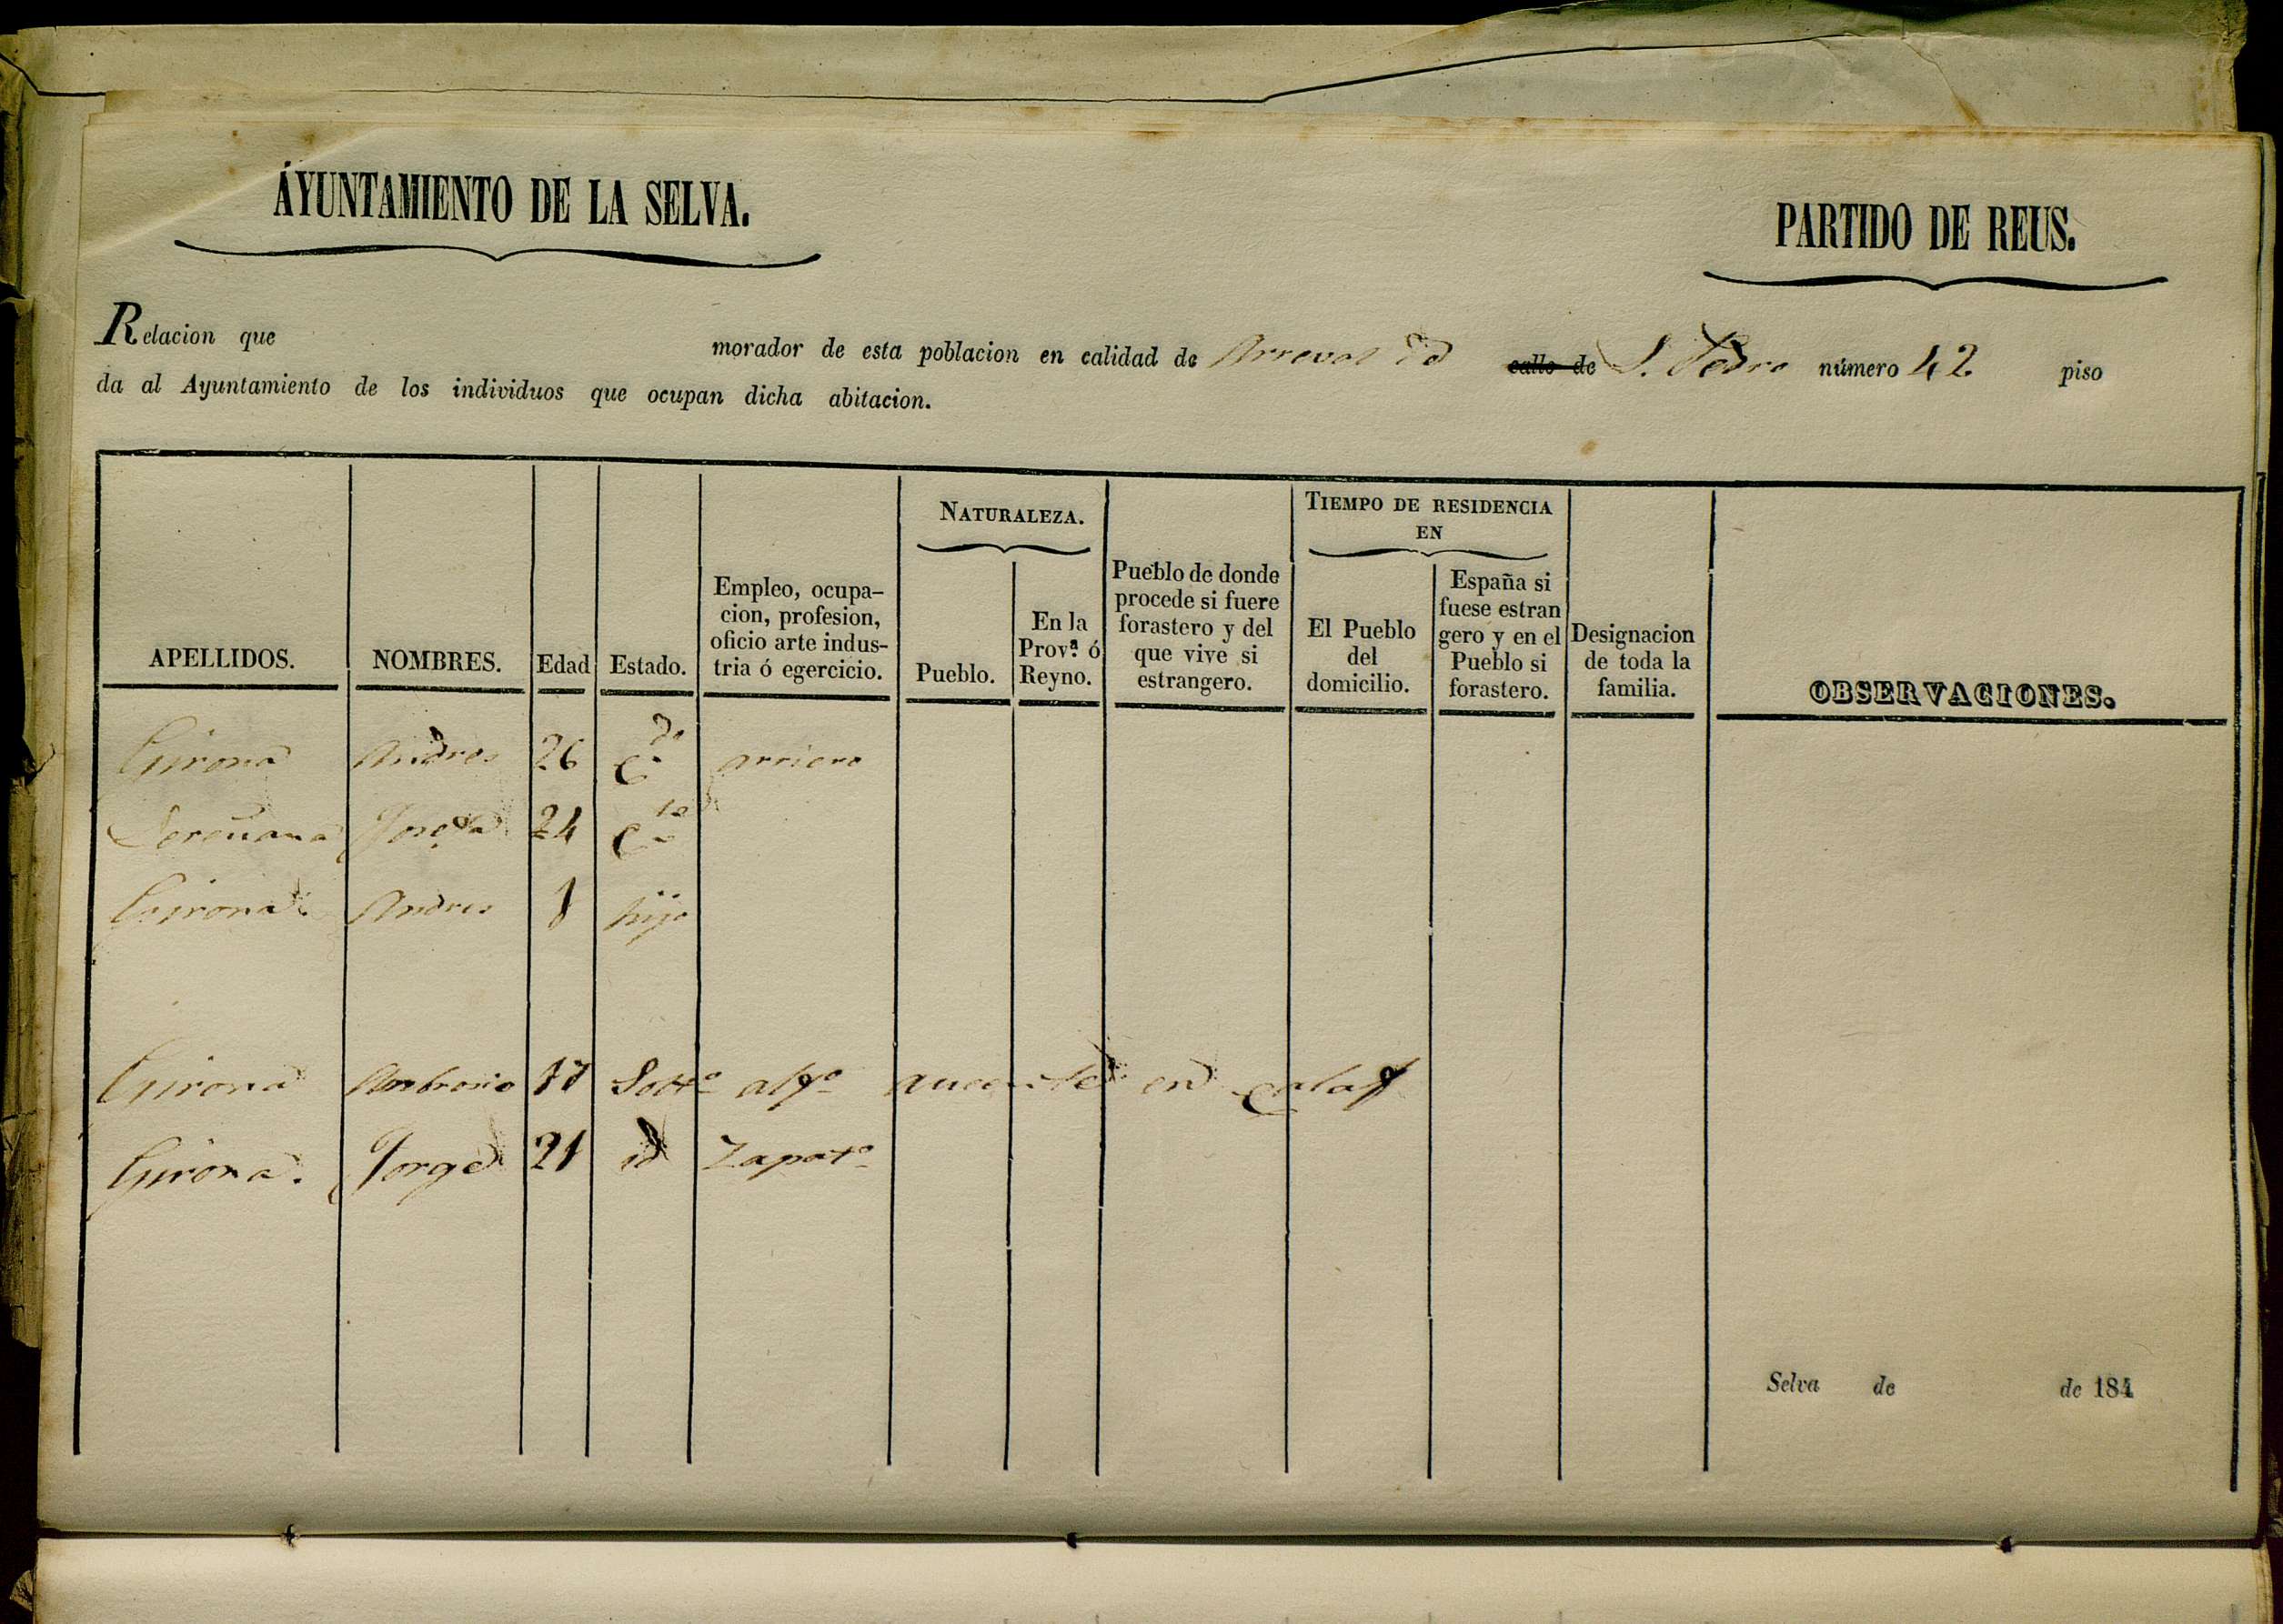 ÁYUNTAMIENTO DE LA SELVA.
PARTIDO DE REUS.
Relacion que morador de esta poblacion en calidad de Arreval de calle de S. Pedro número 42 piso
da al Ayuntamiento de los individuos que ocupan dicha abitacion.
NATURALEZA.
TIEMPO DE RESIDENCIA
EN
APELLIDOS.
NOMBRES.
Edad
Estado.
Empleo, ocupa-
cion, profesion,
oficio arte indus-
tria ó egercicio.
Pueblo.
En la
Prov.ª ó
Reyno.
Pueblo de donde
procede si fuere
forastero y del
que vive si
estrangero.
El Pueblo
del
domicilio.
España si
fuese estran
gero y en el
Pueblo si
forastero.
Designacion
de toda la
familia.
OBSERVACIONES.
Girona Andres 26 C.do arriero
Sereñana Josefa 24 C.da
Girona Andres 1 hijo
Girona Ambrosio Solt.o alp.o aucente en Calaf
Girona. Jorge 21 id Zapat.o
Selva de de 184